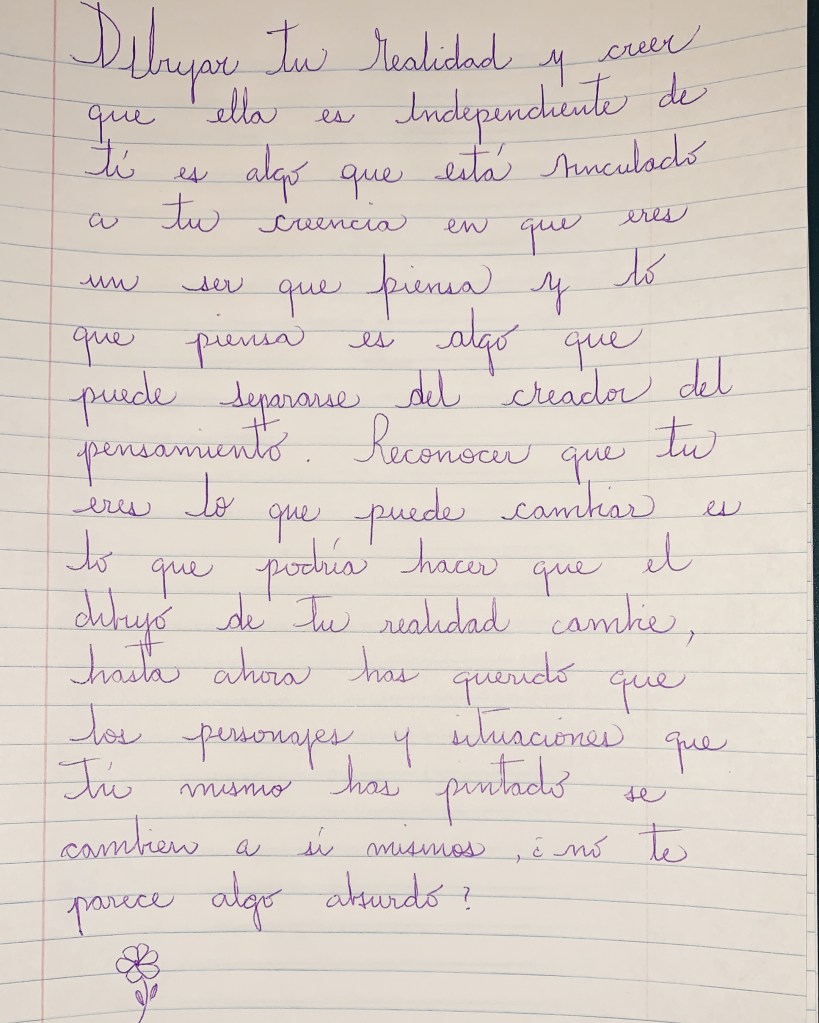 Dibujar tu realidad y creer
que ella es independiente de
ti es algo que está vinculado
a tu creencia en que eres
un ser que piensa y lo
que piensa es algo que
puede separarse del creador del
pensamiento. Reconocer que tu
eres lo que puede cambiar es
lo que podría hacer que el
dibujo de tu realidad cambie,
hasta ahora has querido que
los personajes y situaciones que
Tú mismo has pintado se
cambien a sí mismos, ¿no te
parece algo absurdo?